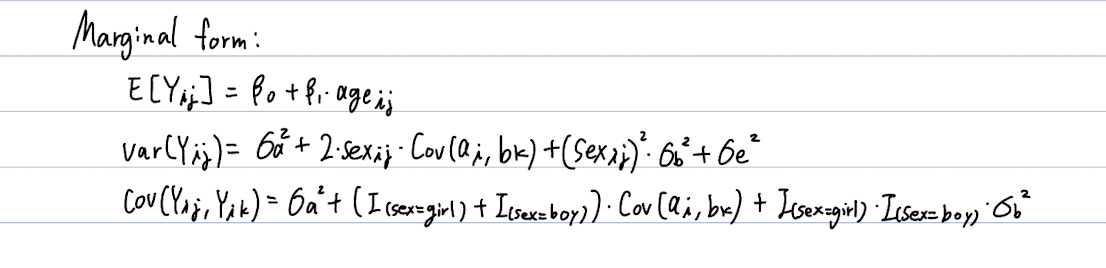 Marginal form:
E[Yij] = β₀ + β₁·ageij
var(Yij) = σa² + 2·sexij·Cov(ai, bk) + (sexij)²·σb² + σe²
Cov(Yij, Yik) = σa² + (I(sex=girl) + I(sex=boy))·Cov(ai, bk) + I(sex=girl)·I(sex=boy)·σb²